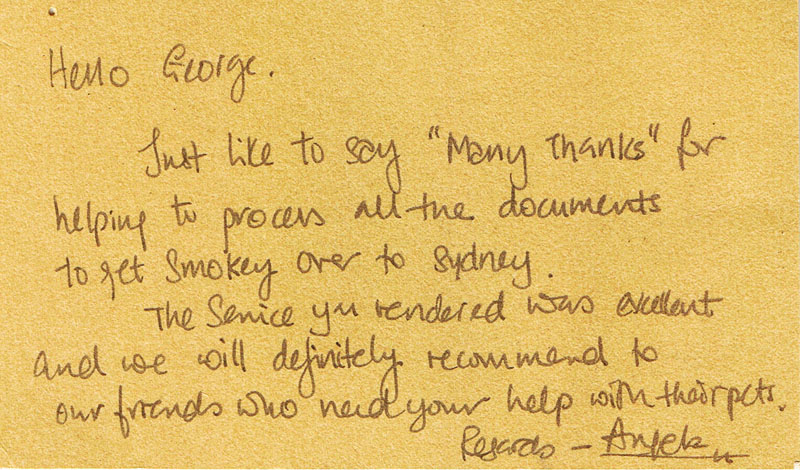 Hello George.
Just like to say "Many Thanks" for
helping to process all the documents
to get Smokey over to Sydney.
The Service you rendered was excellent
and we will definitely recommend to
our friends who need your help with their pets.
Regards - Angela